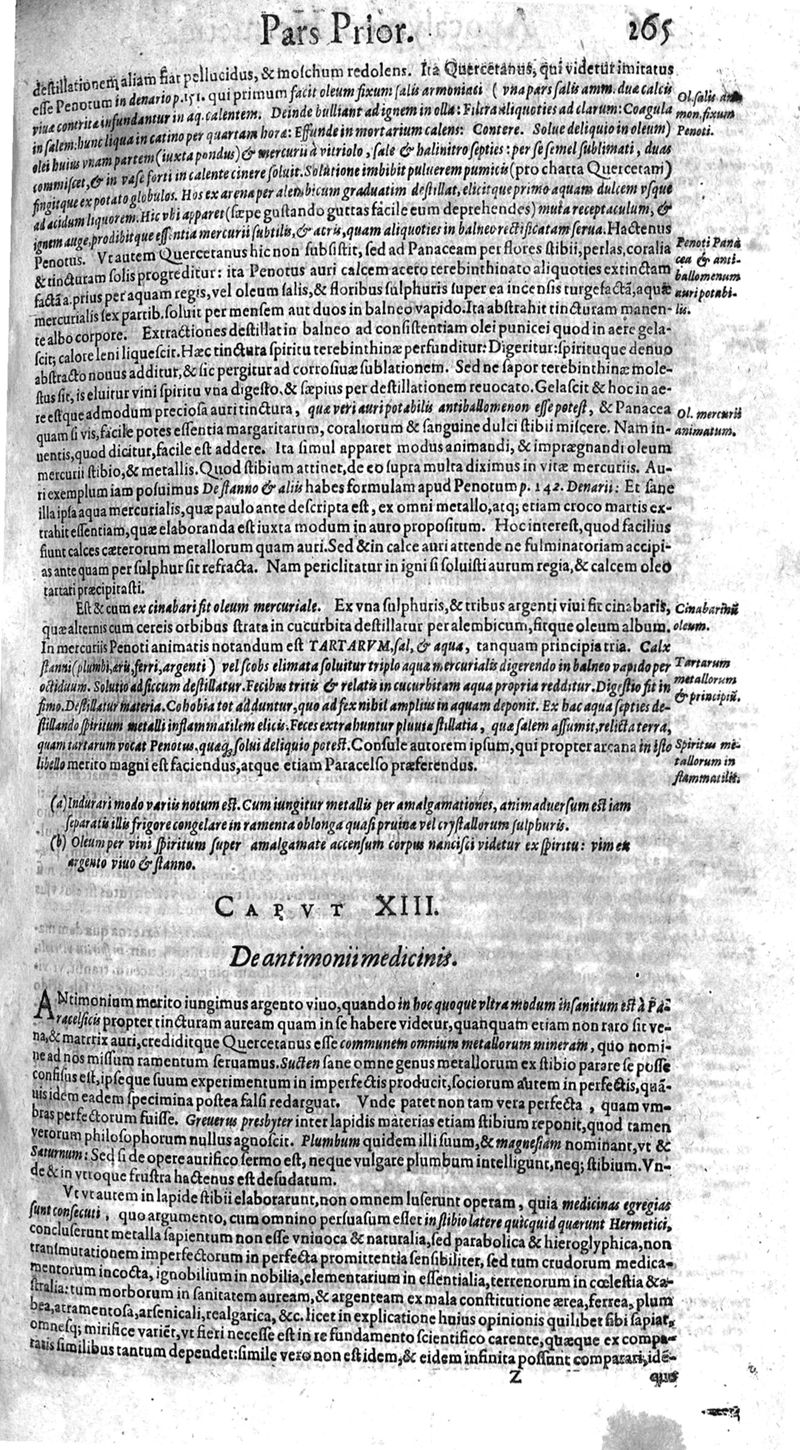 Pars Prior. 265
destillationem aliam fiat pellucidus, & moschum redolens. Ita Quercetanus, qui videtur imitatus
esse Penotum in denario p. 151. qui primum facit oleum fixum salis armoniati ( vna pars salis amm. duæ calcis
viuæ contrita infundantur in aq. calentem. Deinde bulliant ad ignem in olla: Filtra aliquoties ad clarum: Coagula
in salem: hunc liqua in catino per quartam horæ: Effunde in mortarium calens: Contere. Solue deliquio in oleum)
olei huius vnam partem (iuxta pondus) & mercurii à vitriolo, sale & halinitro septies: per se semel sublimati, duas
commiscet, & in vase forti in calente cinere soluit. Solutione imbibit puluerem pumicis (pro charta Quercetani)
fingitque ex potato globulos. Hos ex arena per alembicum graduatim destillat, elicitque primo aquam dulcem vsque
ad acidum liquorem: Hic vbi apparet (sæpe gustando guttas facile eum deprehendes) muta receptaculum, &
ignem auge, prodibitque essentia mercurii subtilis, & acris, quam aliquoties in balneo rectificatam serua. Hactenus
Penotus. Vt autem Quercetanus hic non subsistit, sed ad Panaceam per flores stibii, perlas, coralia
& tincturam solis progreditur: ita Penotus auri calcem aceto terebinthinato aliquoties extinctam
factã a. prius per aquam regis, vel oleum salis, & floribus sulphuris super ea incensis turgefactã, aquæ
mercurialis sex partib. soluit per mensem aut duos in balneo vapido. Ita abstrahit tincturam manen-
te albo corpore. Extractiones destillat in balneo ad consistentiam olei punicei quod in aere gela-
scit; calore leni liquescit. Hæc tinctura spiritu terebinthinæ perfunditur: Digeritur: spirituque denuo
abstracto nouus additur, & sic pergitur ad corrosiuæ sublationem. Sed ne sapor terebinthinæ mole-
stus sit, is eluitur vini spiritu vna digesto, & sæpius per destillationem reuocato. Gelascit & hoc in ae-
re estque admodum preciosa auri tinctura, quæ veri auri potabilis antiballomenon esse potest, & Panacea
quam si vis, facile potes essentia margaritarum, coraliorum & sanguine dulci stibii miscere. Nam in-
uentis, quod dicitur, facile est addere. Ita simul apparet modus animandi, & imprægnandi oleum
mercurii stibio, & metallis. Quod stibium attinet, de eo supra multa diximus in vitæ mercuriis. Au-
ri exemplum iam posuimus De stanno & aliis habes formulam apud Penotum p. 142. Denarii: Et sane
illa ipsa aqua mercurialis, quæ paulo ante descripta est, ex omni metallo, atq; etiam croco martis ex-
trahit essentiam, quæ elaboranda est iuxta modum in auro propositum. Hoc interest, quod facilius
fiunt calces cæterorum metallorum quam auri. Sed & in calce auri attende ne fulminatoriam accipi-
as ante quam per sulphur sit refracta. Nam periclitatur in igni si soluisti aurum regia, & calcem oleo
tartari præcipitasti.
Est & cum ex cinabari fit oleum mercuriale. Ex vna sulphuris, & tribus argenti viui fit cinabaris,
quæ alternis cum cereis orbibus strata in cucurbita destillatur per alembicum, fitque oleum album.
In mercuriis Penoti animatis notandum est TARTARVM, sal, & aqua, tanquam principia tria. Calx
stanni (plumbi, æris, ferri, argenti) vel scobs elimata soluitur triplo aquæ mercurialis digerendo in balneo vapido per
octiduum. Solutio ad siccum destillatur. Fecibus tritis & relatis in cucurbitam aqua propria redditur. Digestio fit in
fimo. Destillatur materia. Cohobia tot adduntur, quo ad fex nihil amplius in aquam deponit. Ex hac aqua septies de-
stillando spiritum metalli inflammatilem elicis. Feces extrahuntur pluuia stillatia, quæ salem assumit, relicta terra,
quam tartarum vocat Penotus, quæq; solui deliquio potest. Consule autorem ipsum, qui propter arcana in isto
libello merito magni est faciendus, atque etiam Paracelso præferendus.
Ol. salis am
mon. fixum
Penoti.
Penoti Pana
cea & anti-
ballomenum
auri potabi-
lis.
Ol. mercurii
animatum.
Cinabarinũ
oleum.
Tartarum
metallorum
& principiũ.
Spiritus me-
tallorum in
flammatilis.
(a) Indurari modo variis notum est. Cum iungitur metallis per amalgamationes, animaduersum est iam
separatis illis frigore congelare in ramenta oblonga quasi pruinæ vel crystallorum sulphuris.
(b) Oleum per vini spiritum super amalgamate accensum corpus nancisci videtur ex spiritu: vim ex
argento viuo & stanno.
CAPVT XIII.
De antimonii medicinis.
ANtimonium merito iungimus argento viuo, quando in hoc quoque vltra modum insanitum est à Pa-
racelsicis propter tincturam auream quam in se habere videtur, quanquam etiam non raro sit ve-
na, & matrix auri, crediditque Quercetanus esse communem omnium metallorum mineram, quo nomi-
ne ad nos missum ramentum seruamus. Sucten sane omne genus metallorum ex stibio parare se posse
confisus est, ipseque suum experimentum in imperfectis producit, sociorum autem in perfectis, quã-
uis idem eadem specimina postea falsi redarguat. Vnde patet non tam vera perfecta, quam vm-
bras perfectorum fuisse. Greuerus presbyter inter lapidis materias etiam stibium reponit, quod tamen
verorum philosophorum nullus agnoscit. Plumbum quidem illi suum, & magnesiam nominant, vt &
Saturnum: Sed si de opere aurifico sermo est, neque vulgare plumbum intelligunt, neq; stibium. Vn-
de & in vtroque frustra hactenus est desudatum.
Vt vt autem in lapide stibii elaborarunt, non omnem luserunt operam, quia medicinas egregias
sunt consecuti, quo argumento, cum omnino persuasum esset in stibio latere quicquid quærunt Hermetici,
concluserunt metalla sapientum non esse vniuoca & naturalia, sed parabolica & hieroglyphica, non
transmutationem imperfectorum in perfecta promittentia sensibiliter, sed tum crudorum medica-
mentorum incocta, ignobilium in nobilia, elementarium in essentialia, terrenorum in cœlestia & a-
stralia: tum morborum in sanitatem auream, & argenteam ex mala constitutione ærea, ferrea, plum
bea, atramentosa, arsenicali, realgarica, &c. licet in explicatione huius opinionis quilibet sibi sapiat,
omnesq; mirifice varièt, vt fieri necesse est in re fundamento scientifico carente, quæque ex compa-
ratis similibus tantum dependet: simile vero non est idem, & eidem infinita possunt comparari, idẽ-
Z que